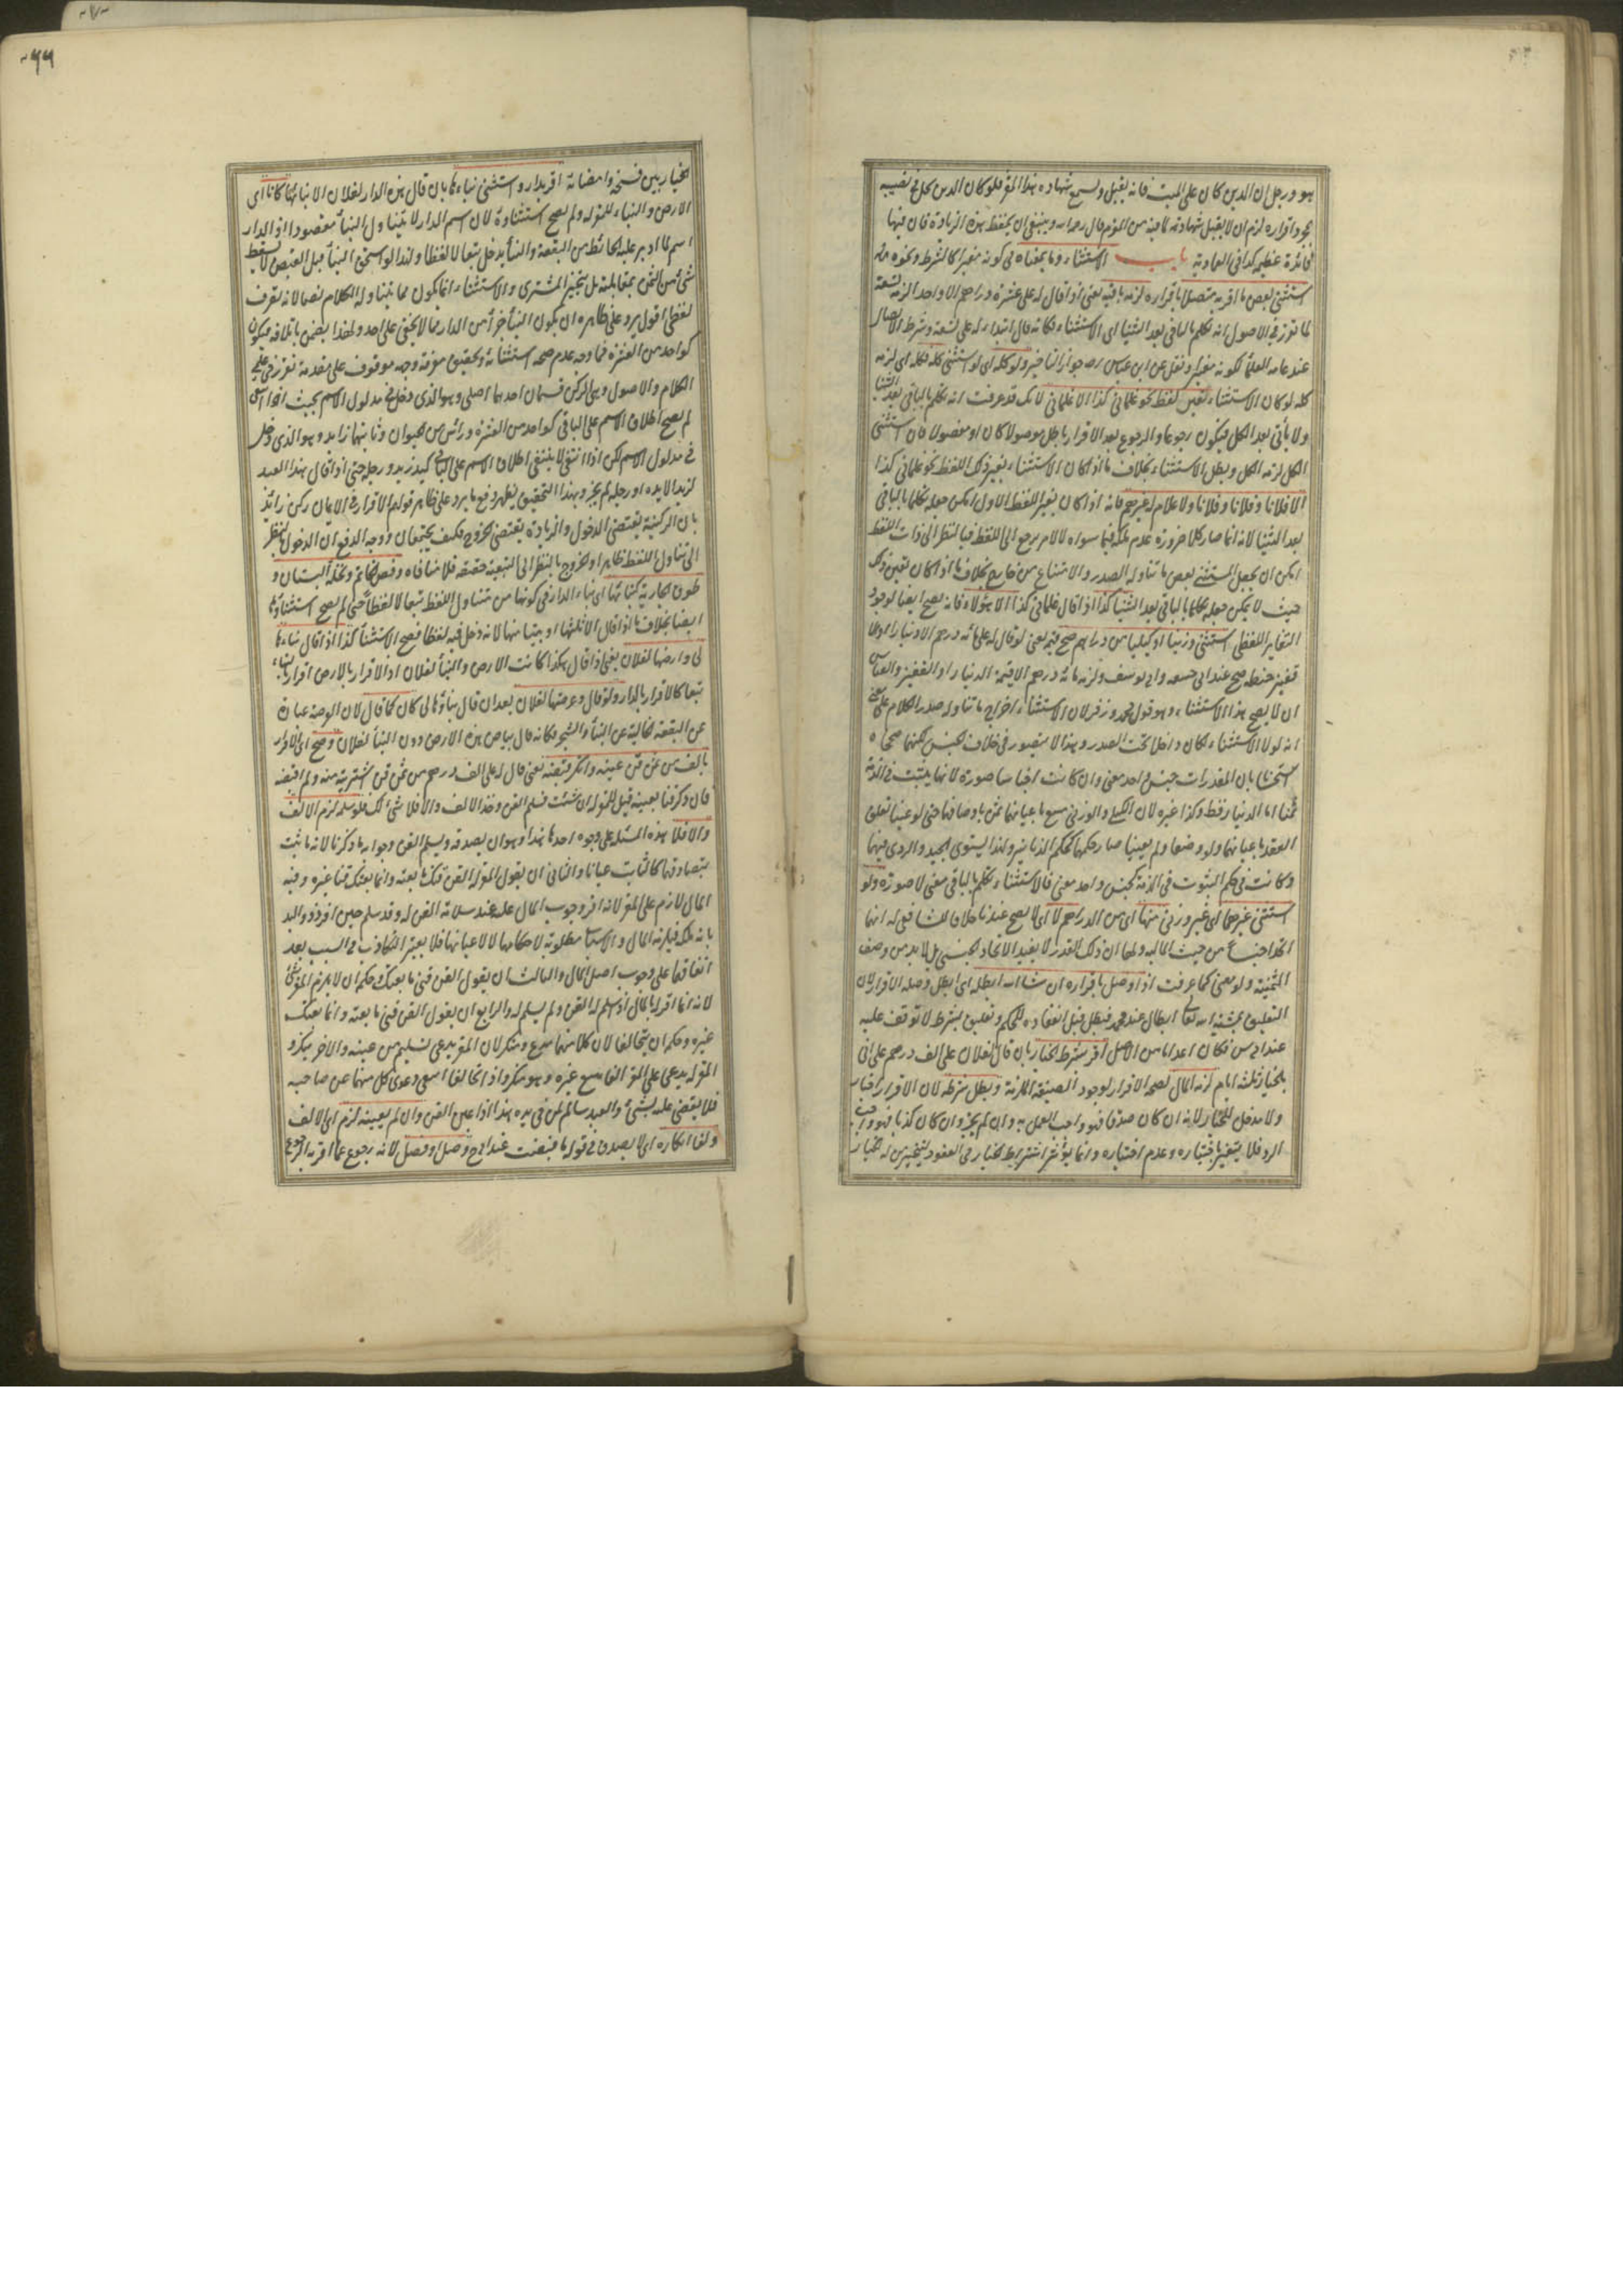 هو ورجل ان الدين كان على الميت فانه يقبل ويسمع شهادة هذا المقر فلو كان الدين كله في نصيبه
بمجرد اقراره لزم ان لا يقبل شهادته لما فيه من الغرم قال رحمه الله وينبغي ان يحفظ هذه الزيادة فان فيها
فائدة عظيمة كذا في العمادية باب الاستثناء وما بمعناه في كونه مغيرا كالشرط ونحوه
استثنى بعض ما اقر به متصلا باقراره لزمه باقيه يعني اذا قال له علي عشرة دراهم الا واحدا لزمه تسعة
لما تقرر في الاصول انه تكلم بالباقي بعد الثنيا اي الاستثناء فكانه قال ابتداء له علي تسعة وشرط الاتصال
عند عامة العلماء لكونه مغيرا ونقل عن ابن عباس رضه جواز التاخير ولو كله اي لو استثنى كله فكله اي لزمه
كله لو كان الاستثناء بعين لفظه نحو غلماني كذا الا غلماني لانك قد عرفت انه تكلم بالباقي بعد الثنيا
ولا باقي بعد الكل فيكون رجوعا والرجوع بعد الاقرار باطل موصولا كان او مفصولا فان استثنى
الكل لزمه الكل وبطل الاستثناء بخلاف ما اذا كان الاستثناء بغير ذلك اللفظ نحو غلماني كذا
الا فلانا وفلانا وفلانا ولا غلام له غيرهم فانه اذا كان بغير اللفظ الاول امكن جعله تكلما بالباقي
بعد الثنيا لانه انما صار كلا ضرورة عدم ملكه فيما سواه لا لامر يرجع الى اللفظ فبالنظر الى ذات اللفظ
امكن ان يجعل المستثنى بعض ما تناوله الصدر والامتناع من خارج بخلاف ما اذا كان بعين ذلك
حيث لا يمكن جعله تكلما بالباقي بعد الثنيا كذا اذا قال غلماني كذا الا هؤلاء فانه يصح ايضا لوجود
التغاير اللفظي استثنى وزنيا او كيليا من دراهم صح قيمة يعني لو قال له علي مائة درهم الا دينارا او الا
قفيز حنطة صح عند ابي حنيفة وابي يوسف ولزمه مائة درهم الا قيمة الدينار او القفيز والقياس
ان لا يصح هذا الاستثناء وهو قول محمد وزفر لان الاستثناء اخراج ما تناوله صدر الكلام على معنى
انه لولا الاستثناء لكان داخلا تحت الصدر وهذا لا يتصور في خلاف الجنس لكنهما صححاه
استحسانا بان المقدرات جنس واحد معنى وان كانت اجناسا صورة لانها يثبت في الذمة
ثمنا اما الدينار فقط وكذا غيره لان الكيلي والوزني مبيع باعيانهما ثمن باوصافهما حتى لو عينا تعلق
العقد باعيانهما ولو وصفا ولم يعينا صار حكمهما كحكم الدنانير ولذا يستوي الجيد والردي فيهما
وكانت في حكم الثبوت في الذمة كجنس واحد معنى فالاستثناء تكلم بالباقي معنى لا صورة ولو
استثنى غيرهما اي غير وزني منها اي من الدراهم لا اي لا يصح عندنا خلافا للشافعي له انهما
اتحدا جنسا من حيث المالية ولهما ان ذلك القدر لا يفيد الاتحاد الجنسي بل لا بد من وصف
الثمنية ولو معنى كما عرفت اذا وصل باقراره ان شاء الله ابطله اي ابطل وصله الاقرار لان
التعليق بمشية الله تعالى ابطال عند محمد فبطل قبل انعقاده للحكم وتعليق بشرط لا توقف عليه
عند ابي س فكان اعداما من الاصل اقر بشرط الخيار بان قال لفلان علي الف درهم على اني
بالخيار ثلثة ايام لزمه المال لصحة الاقرار لوجود الصيغة الملزمة وبطل شرطه لان الاقرار اخبار
ولا مدخل للخيار لانه ان كان صدقا فهو واجب العمل به وان لم يخير وان كان كذبا فهو واجب
الرد فلا يتغير باختياره وعدم اختياره وانما يؤثر اشتراط الخيار في العقود ليتخير من له الخيار
٦٦
الخيار بين فسخه وامضائه اقر بدار واستثنى بناءها بان قال هذه الدار لفلان الا بناءها كانا اي
الارض والبناء للمقر له ولم يصح استثناؤه لان اسم الدار لا يتناول البناء مقصودا اذ الدار
اسم لما ادير عليه الحائط من البقعة والبناء يدخل تبعا لا لفظا ولهذا لو استحق البناء قبل القبض لا يسقط
شئ من الثمن بمقابلته بل يتخير المشتري والاستثناء انما يكون مما يتناوله الكلام نصا لانه تصرف
لفظي اقول يرد على ظاهره ان يكون البناء جزأ من الدار مما لا يخفى على احد ولهذا يضمن باتلافه فيكون
كواحد من العشرة فما وجه عدم صحة استثنائه وتحقيق معرفة وجهه موقوف على مقدمة تقرر في علم
الكلام والاصول وهي الركن قسمان احدهما اصلي وهو الذي دخل في مدلول الاسم بحيث اذا انتفى
لم يصح اطلاق الاسم على الباقي كواحد من العشرة وراس من الحيوان وثانيهما زايد وهو الذي دخل
في مدلول الاسم لكن اذا انتفى لا ينتفي اطلاق الاسم على الباقي كيد زيد ورجله حتى اذا قال هذا العبد
لزيد الا يده او رجله لم يجز وبهذا التحقيق يظهر دفع ما يرد على ظاهر قولهم الاقرار في الايمان ركن زائد
بان الركنية يقتضي الدخول والزيادة يقتضي الخروج فكيف يجتمعان ووجه الدفع ان الدخول بالنظر
الى تناول اللفظ ظاهرا والخروج بالنظر الى التبعية حقيقة فلا منافاة وفص الخاتم ونخلة البستان و
طوق الجارية كبنائها اي بناء الدار في كونها من متناول اللفظ تبعا لا لفظا حتى لم يصح استثناؤها
ايضا بخلاف ما اذا قال الا ثلثها او بيتا منها لانه دخل فيه لفظا فصح الاستثناء كذا اذا قال بناءها
لي وارضها لفلان يعني اذا قال هكذا كانت الارض والبناء لفلان اذ الاقرار بالارض اقرار بالبناء
تبعا كالاقرار بالدار ولو قال وعرصتها لفلان بعد ان قال بناؤها لي كان كما قال لان العرصة عبارة
عن البقعة الخالية عن البناء والشجر فكانه قال بياض هذه الارض دون البناء لفلان وصح اي الاقرار
بالف من ثمن قن عينه وانكر قبضه يعني قال له علي الف درهم من ثمن قن اشتريته منه ولم اقبضه
فان ذكر قنا بعينه قيل للمقر له ان شئت فسلم القن وخذ الالف والا فلا شئ لك فلو سلمه لزم الالف
والا فلا هذه المسئلة على وجوه احدها هذا وهو ان يصدقه ويسلم القن وجوابه ما ذكرنا لانه ما ثبت
بتصادقهما كالثابت عيانا والثاني ان يقول المقر له القن قنك ما بعته وانما بعتك قنا غيره وفيه
المال لازم على المقر لانه اقر بوجوب المال عليه عند سلامة القن له وقد سلم حين اقر ذو اليد
بانه ملكه فيلزمه المال والاسباب مطلوبة لاحكامها لا لاعيانها فلا يعتبر التكاذب في السبب بعد
اتفاقهما على وجوب اصل المال والثالث ان يقول القن قني ما بعتك وحكمه ان لا يلزم المقر شئ
لانه انما اقر بالمال اذا سلم له القن ولم يسلم له والرابع ان يقول القن قني ما بعته وانما بعتك
غيره وحكمه ان يتحالفا لان كلا منهما مدع ومنكر لان المقر يدعي تسليم من عينه والاخر ينكر و
المقر له يدعي على المقر الفا ببيع غيره وهو ينكر واذا تحالفا انتفى دعوى كل منهما عن صاحبه
فلا يقضى عليه بشئ والعبد سالم لمن في يده هذا اذا عين القن وان لم يعينه لزم اي الالف
ولغا انكاره اي لا يصدق في قوله ما قبضت عند ابي ح وصل او فصل لانه رجوع عما اقر به